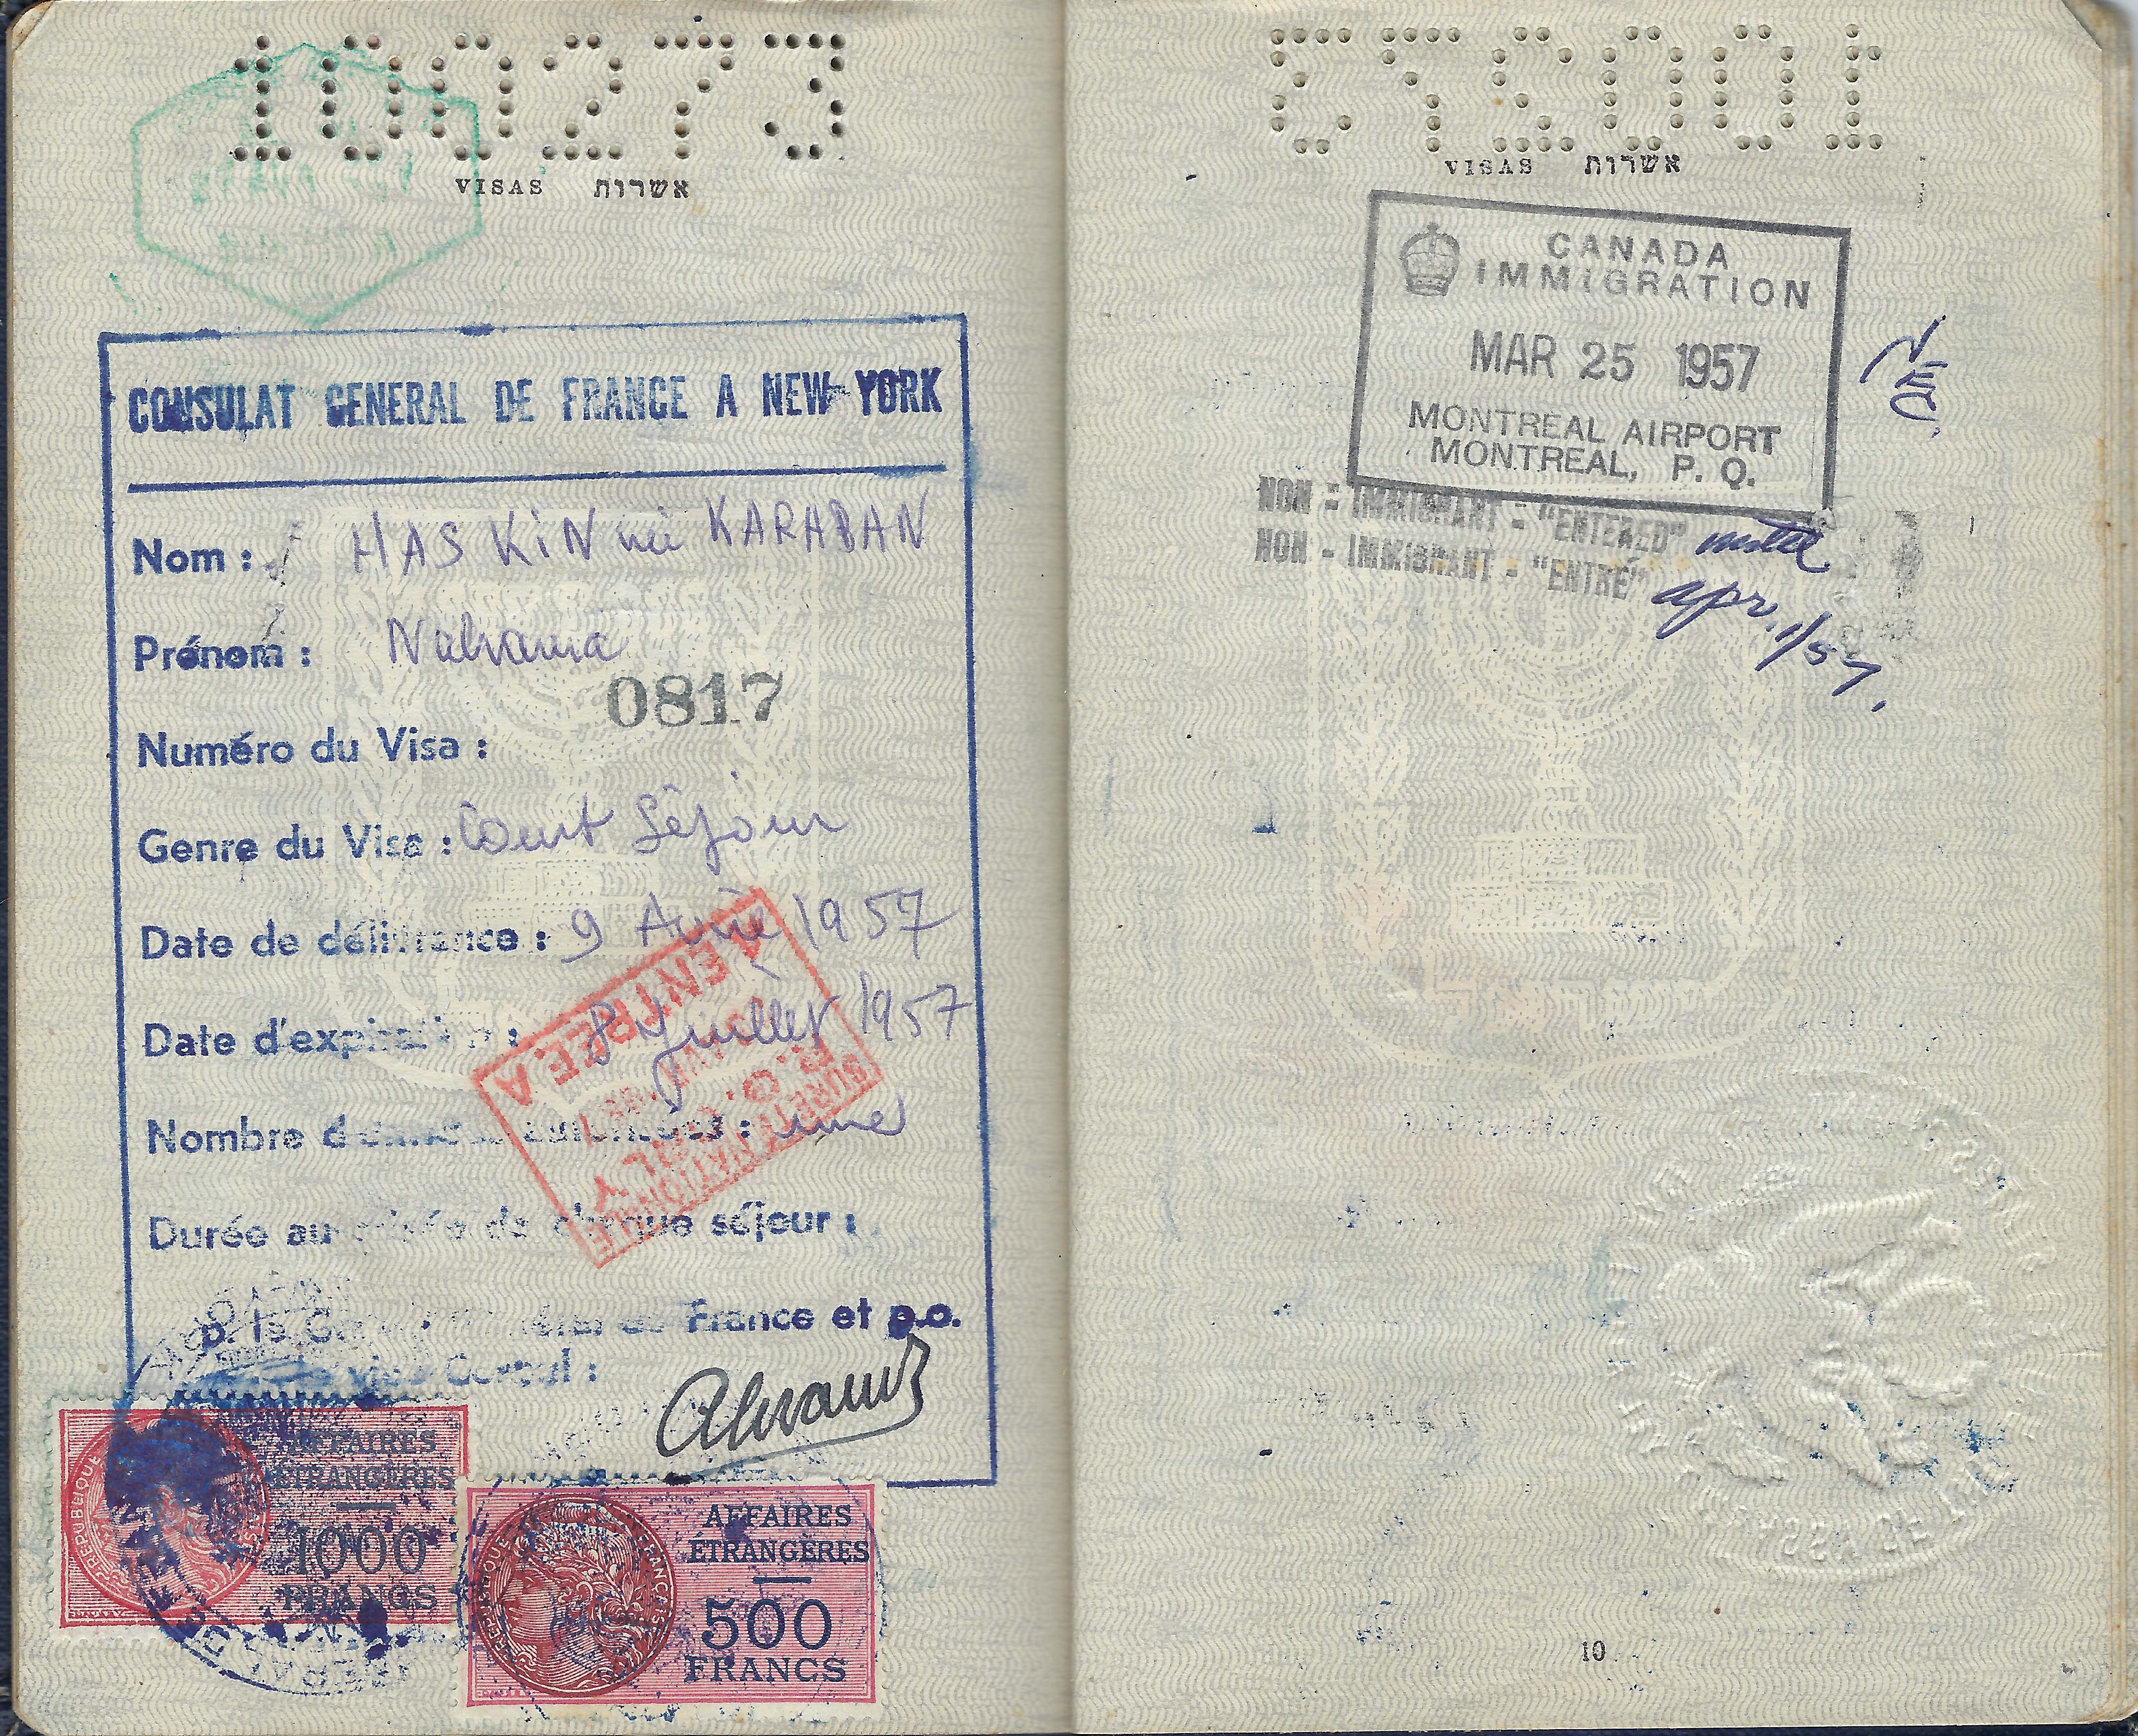 100273
VISAS אשרות
CONSULAT GENERAL DE FRANCE A NEW-YORK
Nom : HASKIN née KARABAN
Prénom : Nehama
0817
Numéro du Visa :
Genre du Visa : Court Séjour
Date de délivrance : 9 Avril 1957
Date d'expiration : 8 Juillet 1957
Nombre d'entrées autorisées : une
Durée autorisée de chaque séjour :
p. le Consul Général de France et p.o.
vice Consul :
ENTREE A
ORLY
SURETE NATIONALE
RÉPUBLIQUE
AFFAIRES
ÉTRANGÈRES
1000
FRANCS
RÉPUBLIQUE FRANÇAISE
AFFAIRES
ÉTRANGÈRES
500
FRANCS
100273
VISAS אשרות
CANADA
IMMIGRATION
MAR 25 1957
MONTREAL AIRPORT
MONTREAL, P. Q.
NON - IMMIGRANT - "ENTERED" until
NON - IMMIGRANT - "ENTRÉ" apr. 1/57.
10